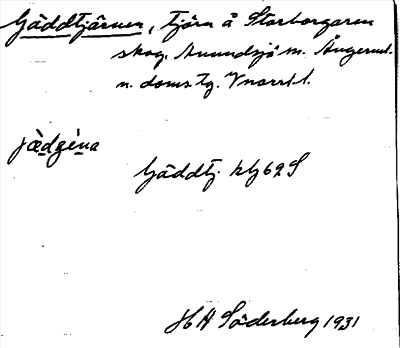 Gäddtjärnen, tjärn å Storborgaren
skog, Anundsjö sn. Ångerml.
n. doms. tg. Vnorrl. l.
jèdgéna
Gäddtj. kbl 62 S
H A Söderberg 1931